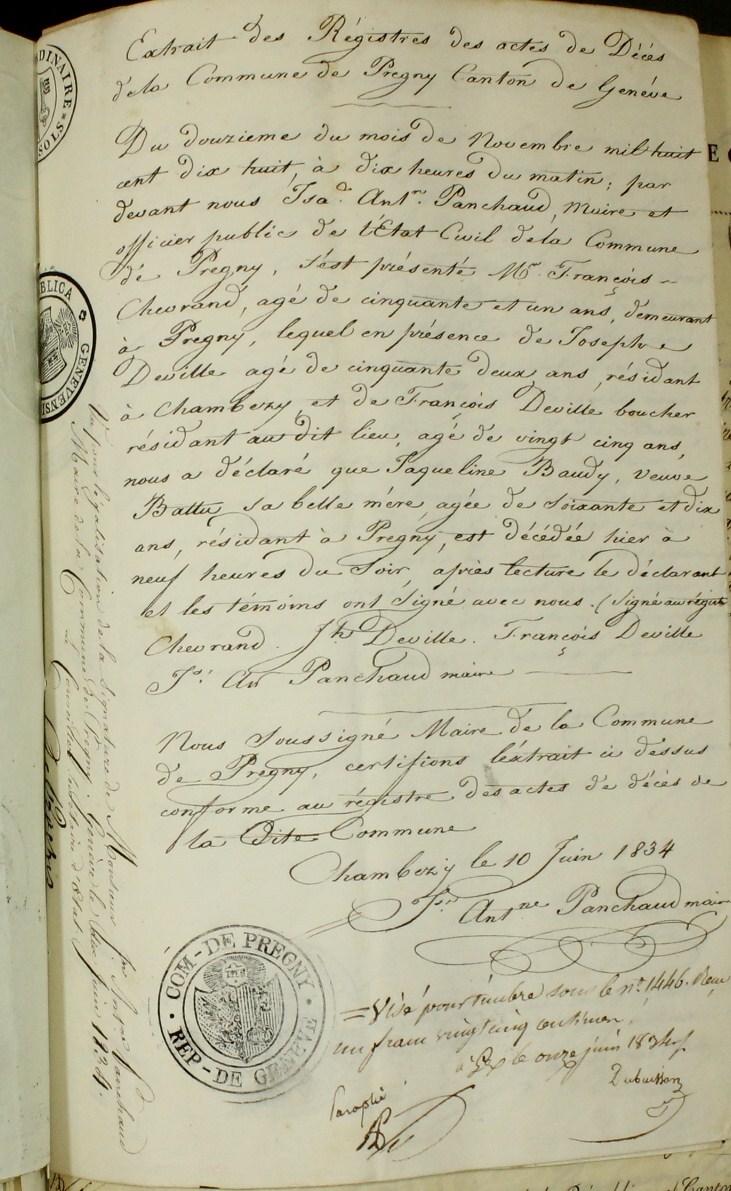 Extrait des Régistres des actes de Décès
de la Commune de Pregny Canton de Genève
Du douzieme du mois de Novembre mil huit
cent dix huit, à dix heures du matin; par
devant nous Isa.c Ant.ne Panchaud, Maire et
officier public de l'Etat Civil de la Commune
de Pregny, s'est présenté Mr. François
Chevrand, agé de cinquante et un ans, demeurant
à Pregny, lequel en présence de Joseph
Deville agé de cinquante deux ans, résidant
à Chambezy et de François Deville boucher
résidant au dit lieu, agé de vingt cinq ans,
nous a déclaré que Jaqueline Baudy, veuve
Battu sa belle mère, agée de soixante et dix
ans, résidant à Pregny, est décédée hier à
neuf heures du soir, après lecture le déclarant
et les témoins ont signé avec nous. (Signé au régist
Chevrand. Jh Deville. François Deville
An Panchaud maire
Nous soussigné Maire de la Commune
de Pregny, certifions l'éxtrait ci dessus
conforme au régistre des actes de décès de
la Dite Commune
Chambezy le 10 Juin 1834
Antne Panchaud maire
COM-DE PREGNY
REP-DE GENEVE
=Visé pour timbre sous le n.o 1446. Reçu
un franc vingt cinq centimes.
à Gex le onze juin 1834
Dubuisson
Paraphé
DINAIRE
SOLS
BLICA GENEVENSIS
Vu pour légalisation de la signature de Monsieur Panchaud
Maire de la Commune de Pregny. Genève le Juin 1834.